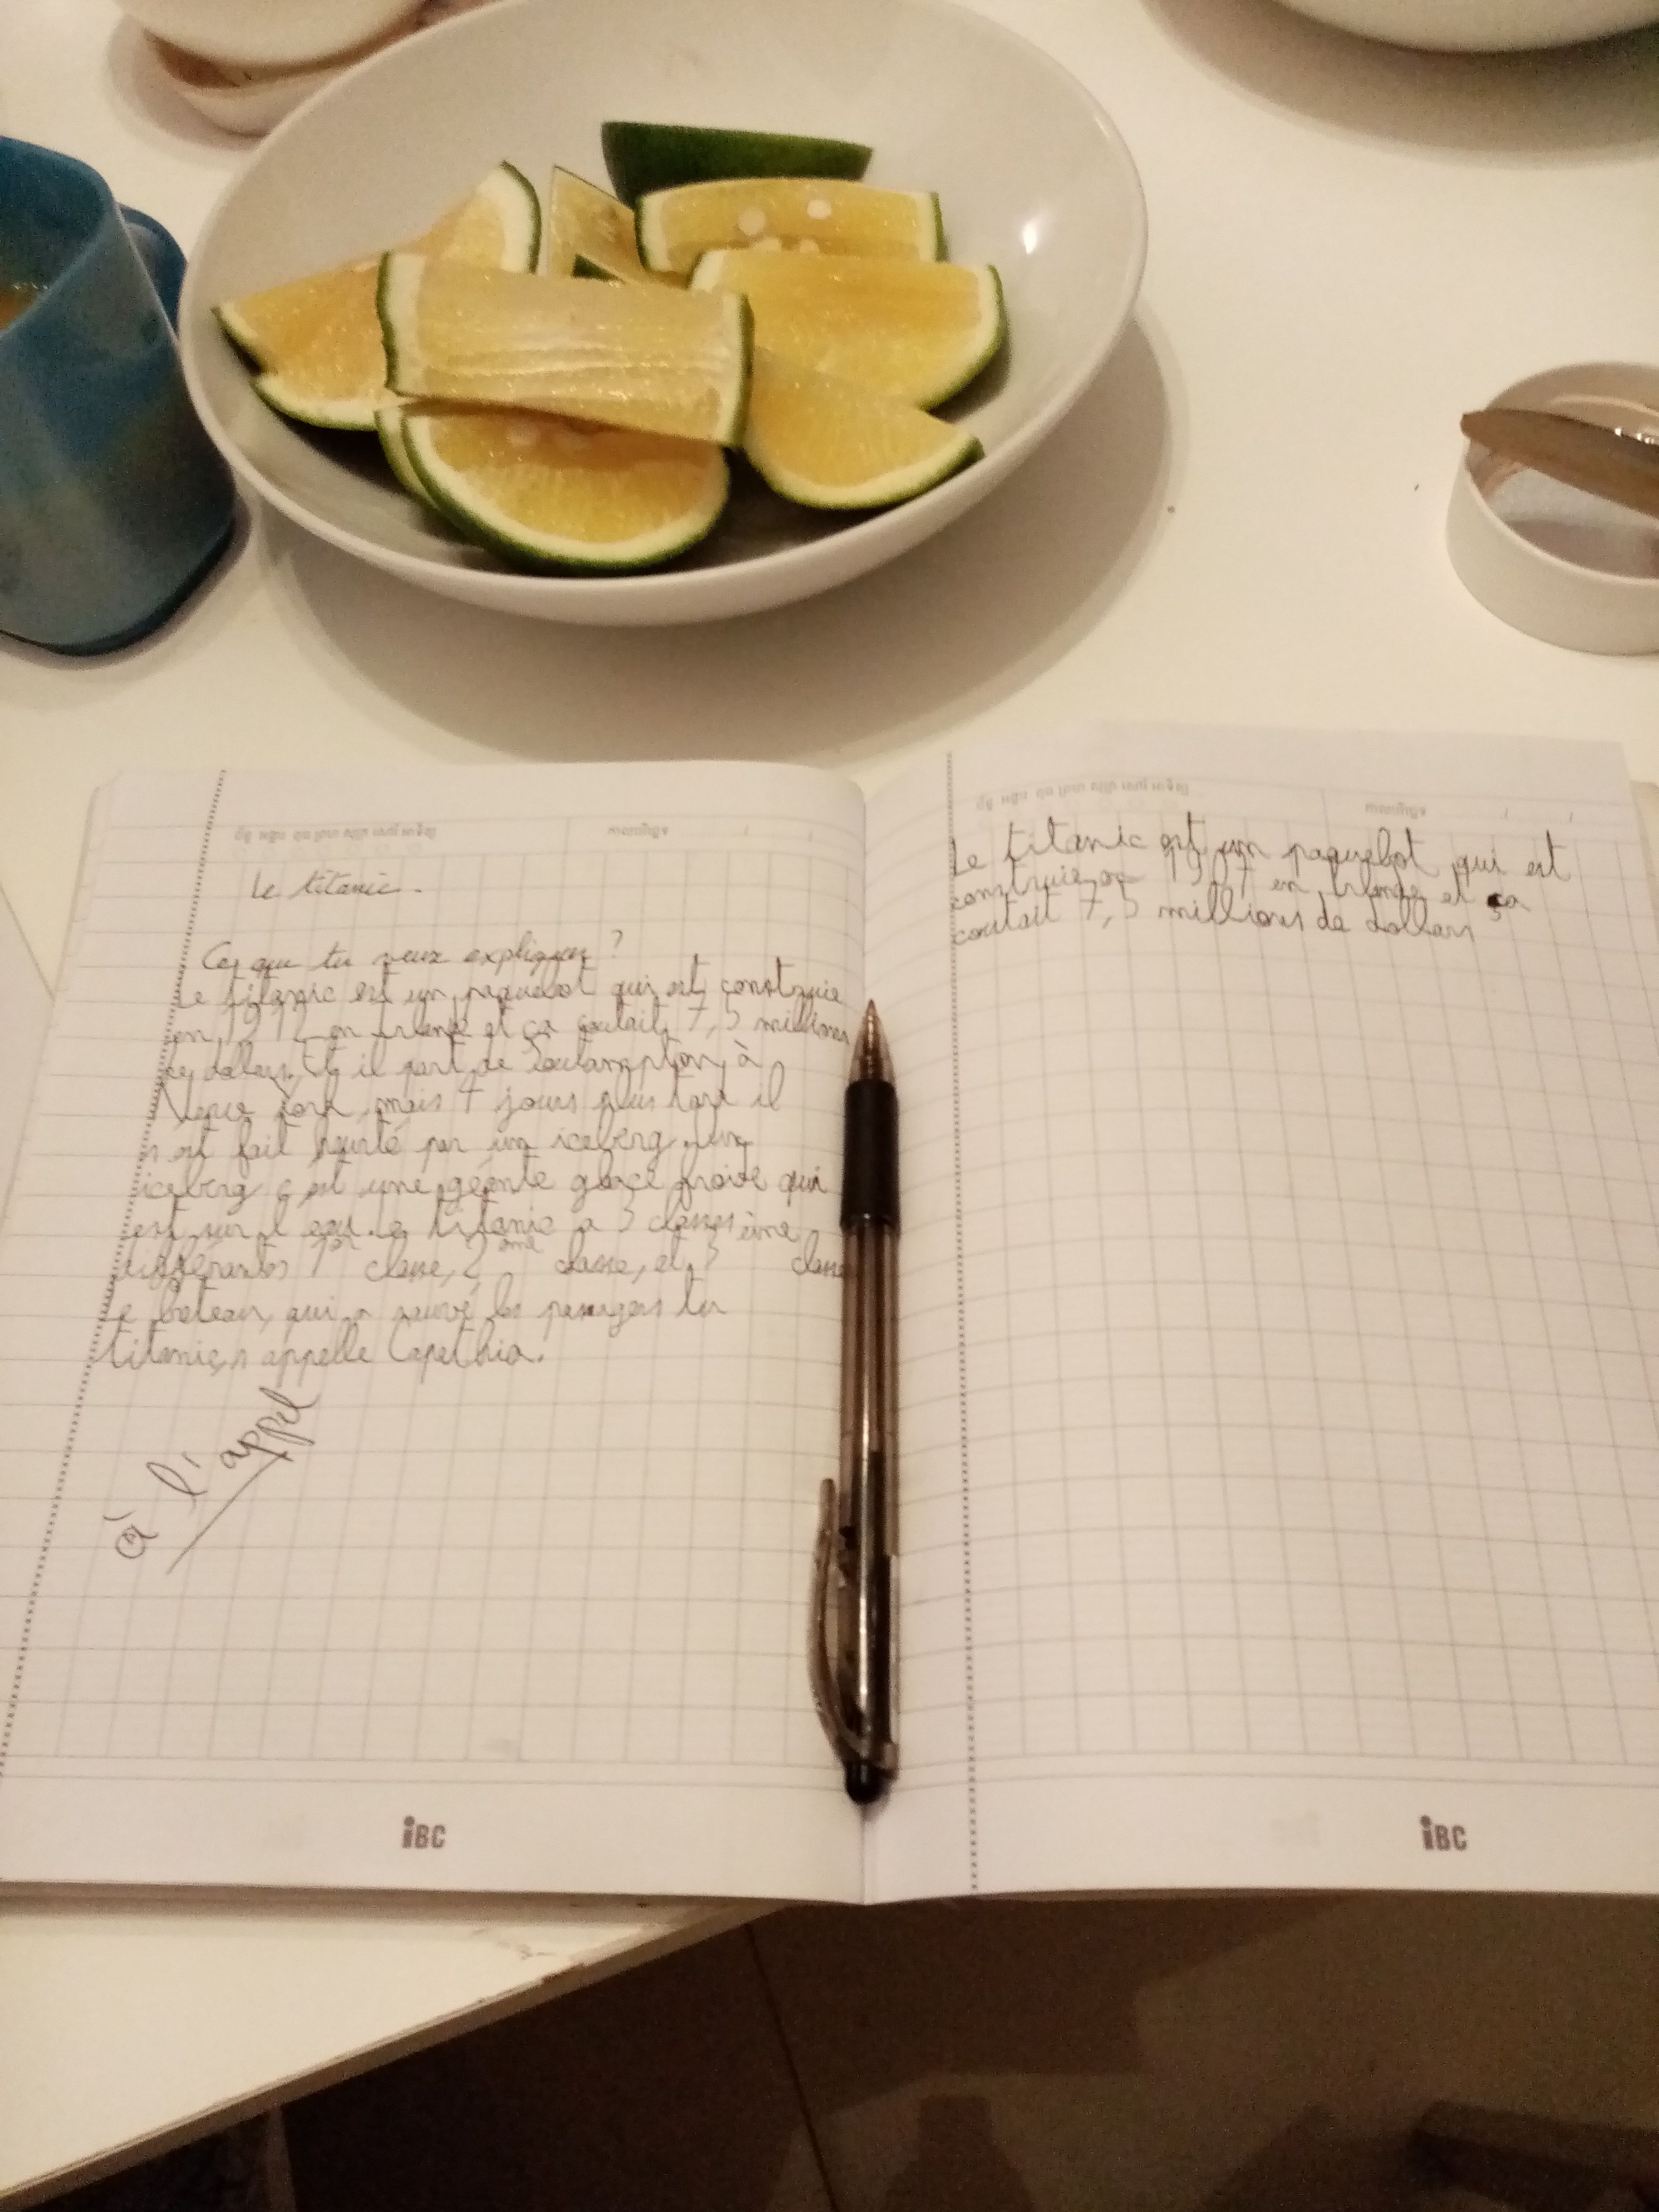 Le titanic.
Ces que tu veux expliquer ?
Le titanic est un paquebot qui est construie
en 1912 en irlende et ça coutait 7,5 millions
de dollars, Et il part de Soutampton à
New york mais 4 jours plus tard il
s'est fait heurté par un iceberg. Un
iceberg c'est une géante glace froide qui
est sur l'eau. Le titanic a 3 classes
différantes 1er classe, 2ème classe, et 3ème classe
Le bateau qui a sauvé les passagers tu
titanic, s'appelle Capethia.
à l'appel
iBC
Le titanic est un paquebot qui est
construie en 1907 en irlende et ça
coutait 7,5 millions de dollars
iBC